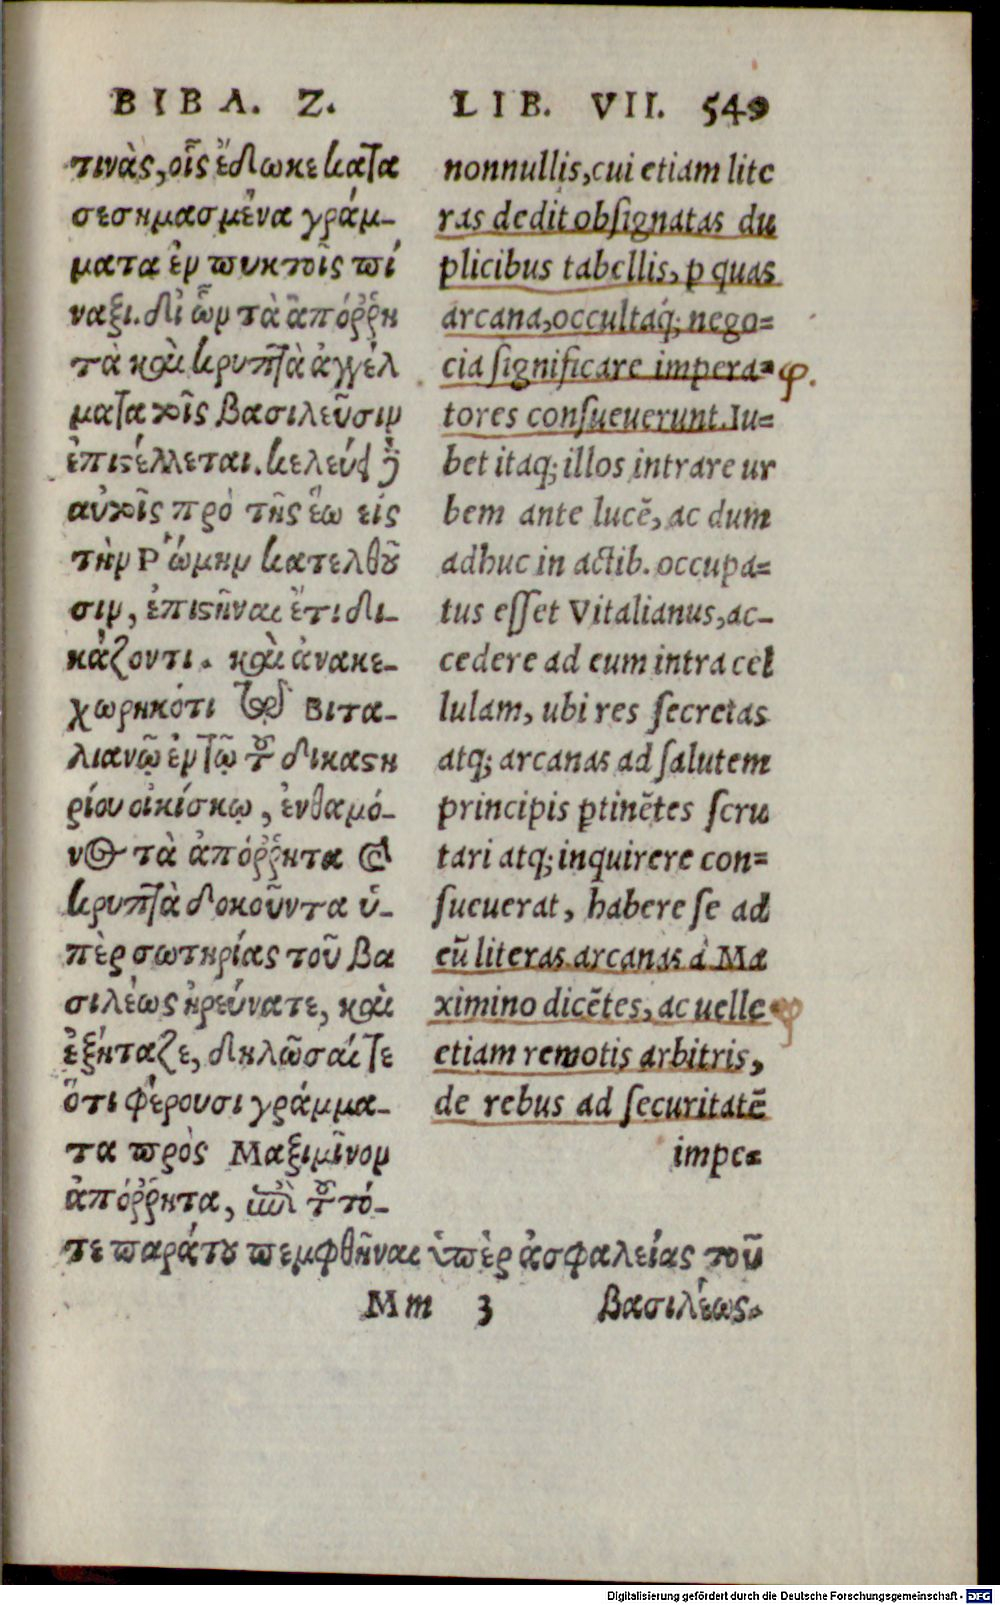 ΒΙΒΛ. Ζ.
τινὰς, οἷς ἔδωκε κατα
σεσημασμένα γράμ-
ματα ἐν πυκτοῖς πί
ναξι. δι ὧν τὰ ἀπόῤῥη
τὰ καὶ κρυπτὰ ἀγγέλ
ματα τοῖς βασιλεῦσιν
ἐπιστέλλεται. κελεύει
αὐτοῖς πρὸ τῆς ἕω εἰς
τὴν Ῥώμην κατελθοῦ
σιν, ἐπιστῆναι ἔτι δι-
κάζοντι. καὶ ἀνακε-
χωρηκότι τῷ Βιτα-
λιανῷ ἐν τῷ τοῦ δικαστη
ρίου οἰκίσκῳ, ἔνθα μό-
νος τὰ ἀπόῤῥητα καὶ
κρυπτὰ δοκοῦντα ὑ-
πὲρ σωτηρίας τοῦ βα
σιλέως ἠρεύνατε, καὶ
ἐξήταζε, δηλῶσαί τε
ὅτι φέρουσι γράμμα-
τα πρὸς Μαξιμῖνον
ἀπόῤῥητα, τοῦ τό-
τε παρ' αὐτοῦ πεμφθῆναι ὑπὲρ ἀσφαλείας τοῦ
LIB. VII. 549
nonnullis, cui etiam lite
ras dedit obsignatas du
plicibus tabellis, p quas
arcana, occultaq́; nego=
cia significare impera=
tores consueuerunt. Iu=
bet itaq; illos intrare ur
bem ante lucẽ, ac dum
adhuc in actib. occupa=
tus esset Vitalianus, ac-
cedere ad eum intra cel
lulam, ubi res secretas
atq; arcanas ad salutem
principis ptinẽtes scru
tari atq; inquirere con=
sueuerat, habere se ad
eũ literas arcanas à Ma
ximino dicẽtes, ac uelle
etiam remotis arbitris,
de rebus ad securitatẽ
impe=
Mm 3 βασιλέως.
φ.
φ
Digitalisierung gefördert durch die Deutsche Forschungsgemeinschaft - DFG